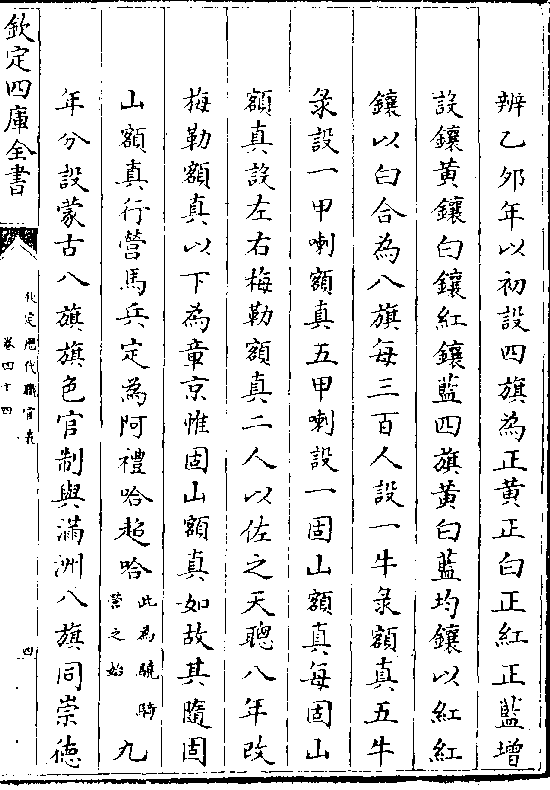 辨乙夘年以初設四旗為正黄正白正紅正藍增
設鑲黄鑲白鑲紅鑲藍四旗黄白藍均鑲以紅紅
鑲以白合為八旗每三百人設一牛彔額真五牛
彔設一甲喇額真五甲喇設一固山額真每固山
額真設左右梅勒額真二人以佐之天聰八年改
梅勒額真以下為章京惟固山額真如故其隨固
山額真行營馬兵定為阿禮哈超哈此為驍騎營之始九
年分設蒙古八旗旗色官制與滿洲八旗同崇德
欽定四庫全書
欽定歷代職官表
卷四十四
四